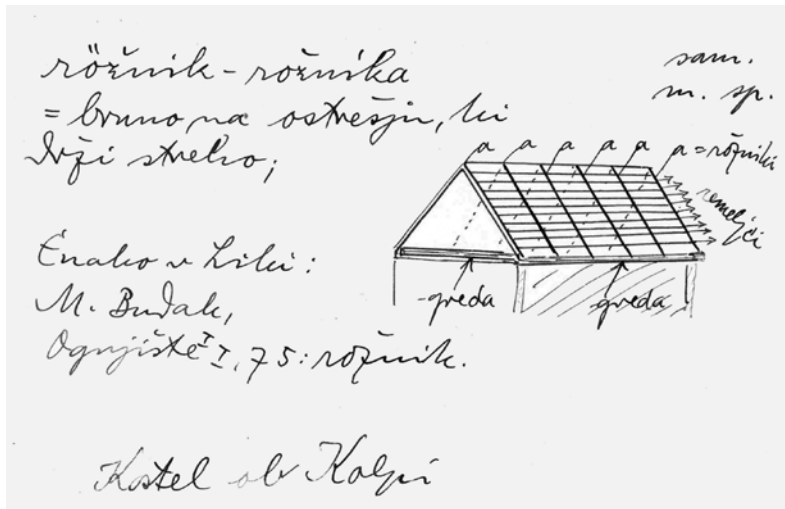 rožnik - rožnika
= bruno na ostrešju, ki
drži streho;
sam.
m. sp.
a a a a a a = rožniki
remeljči
greda greda
Enako v Liki:
M. Budak,
Ognjište I, 75: rožnik.
Kostel ob Kolpi